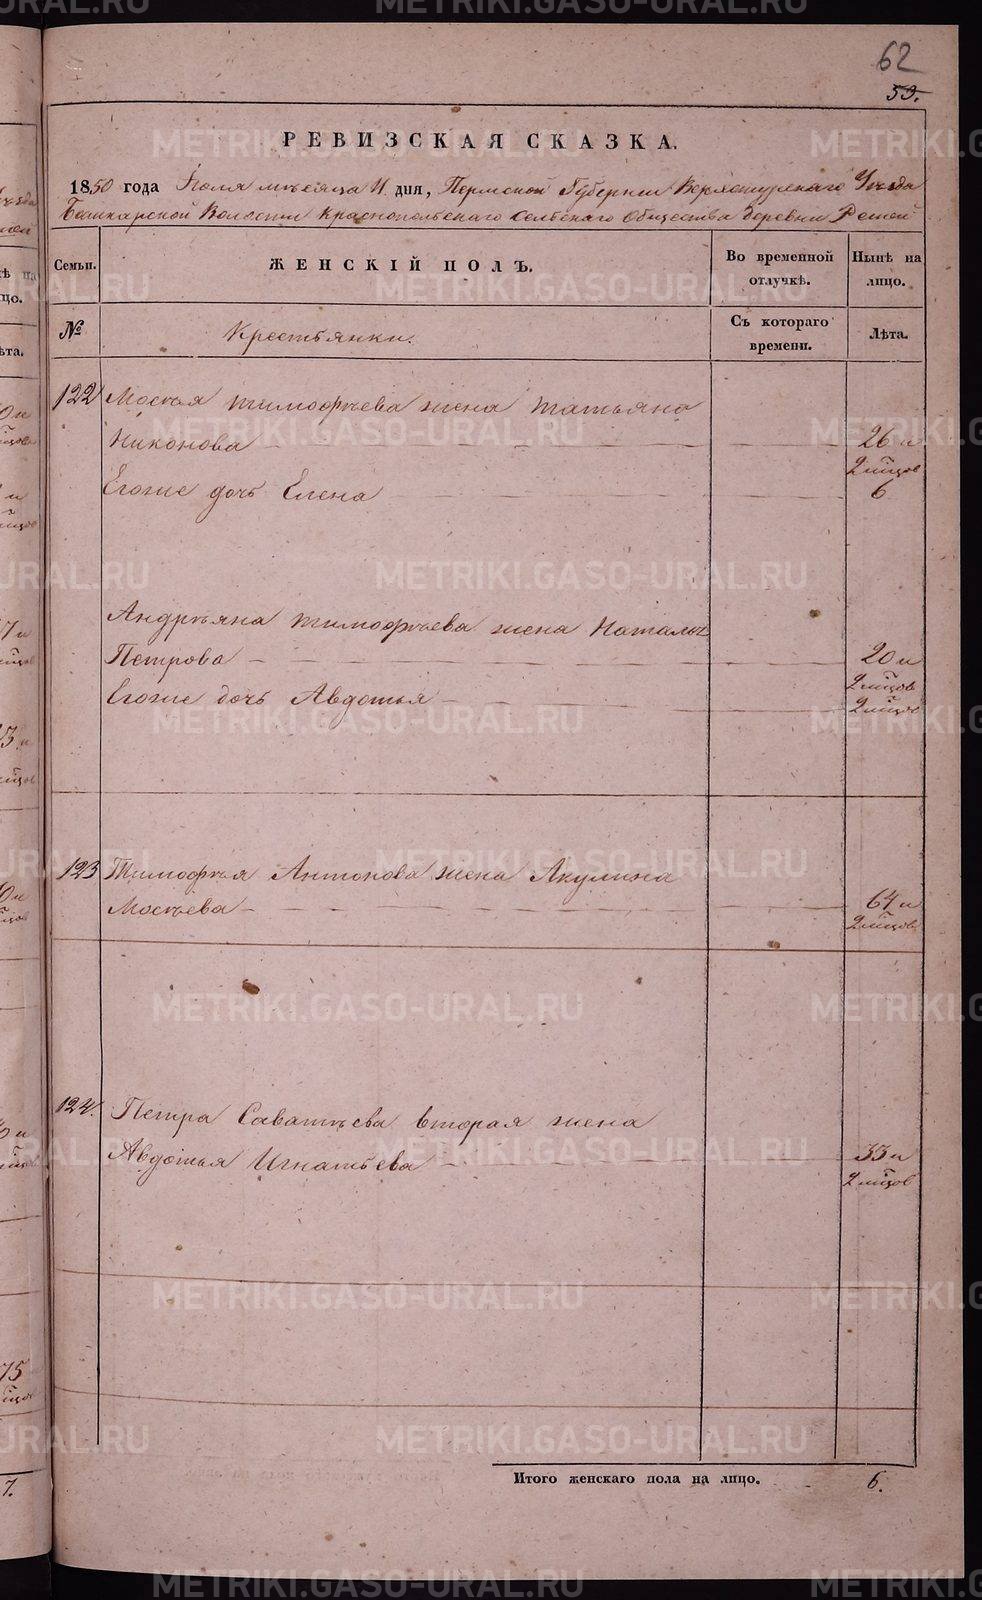 62
59.
РЕВИЗСКАЯ СКАЗКА.
1850 года Июля месяца 11 дня, Пермской Губернии Верхотурскаго Уезда
Башкарской Волости Краснопольскаго Сельскаго Общества деревни Решей
Семьи. ЖЕНСКІЙ ПОЛЪ. Во временной отлучкѣ. Нынѣ на лицо.
№ Крестьянки. Съ котораго времени. Лѣта.
122 Мосѣя Тимофѣева жена Татьяна
Никонова 26 и
2 мѣцов
Егоже дочь Елена 6
Андрѣяна Тимофѣева жена Наталья
Петрова 20 и
2 мѣцов
Егоже дочь Авдотья 2 мѣцов
123 Тимофѣя Антонова жена Акулина
Мосѣева 64 и
2 мѣцов
124. Петра Саватѣева вторая жена
Авдотья Игнатьева 33 и
2 мѣцов
Итого женскаго пола на лицо. 6.
METRIKI.GASO-URAL.RU